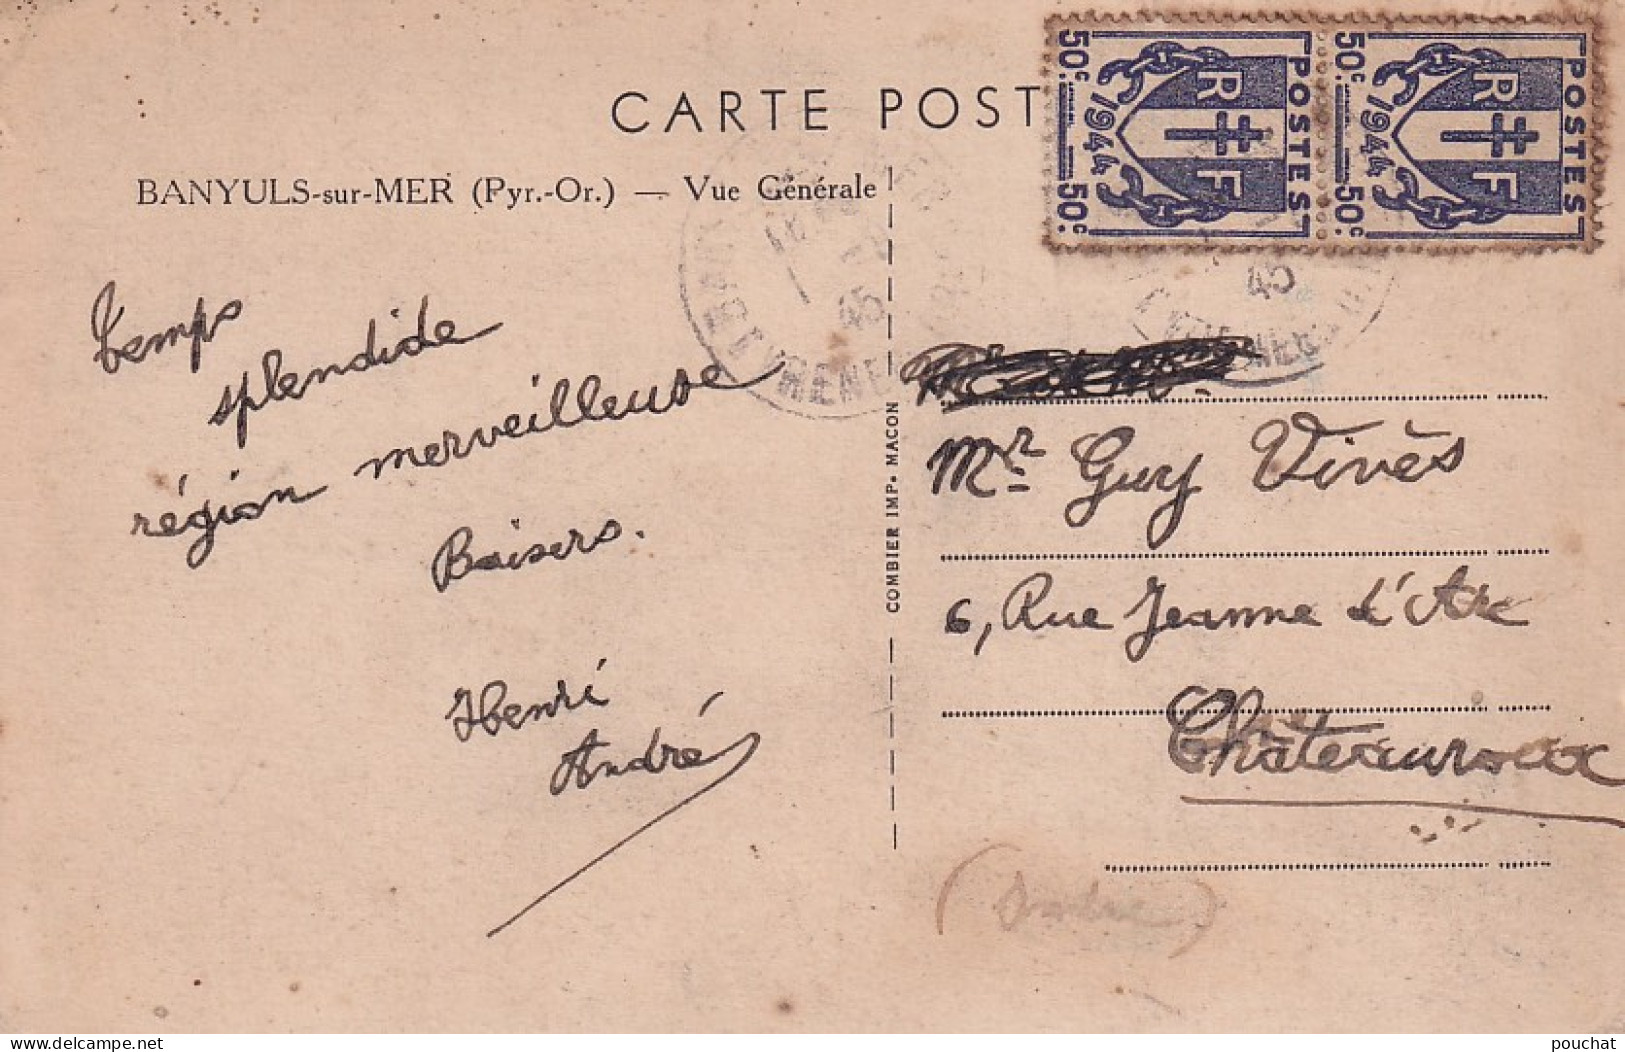 CARTE POST
BANYULS-sur-MER (Pyr.-Or.) — Vue Générale
temps
splendide
région merveilleuse
Baisers.
Henri
André
COMBIER IMP. MACON
POSTES
RF
1944
50c
50c
POSTES
RF
1944
50c
50c
45
45
Mr Guy Vivès
6, Rue Jeanne d'Arc
Châteauroux
(Indre)
pouchat